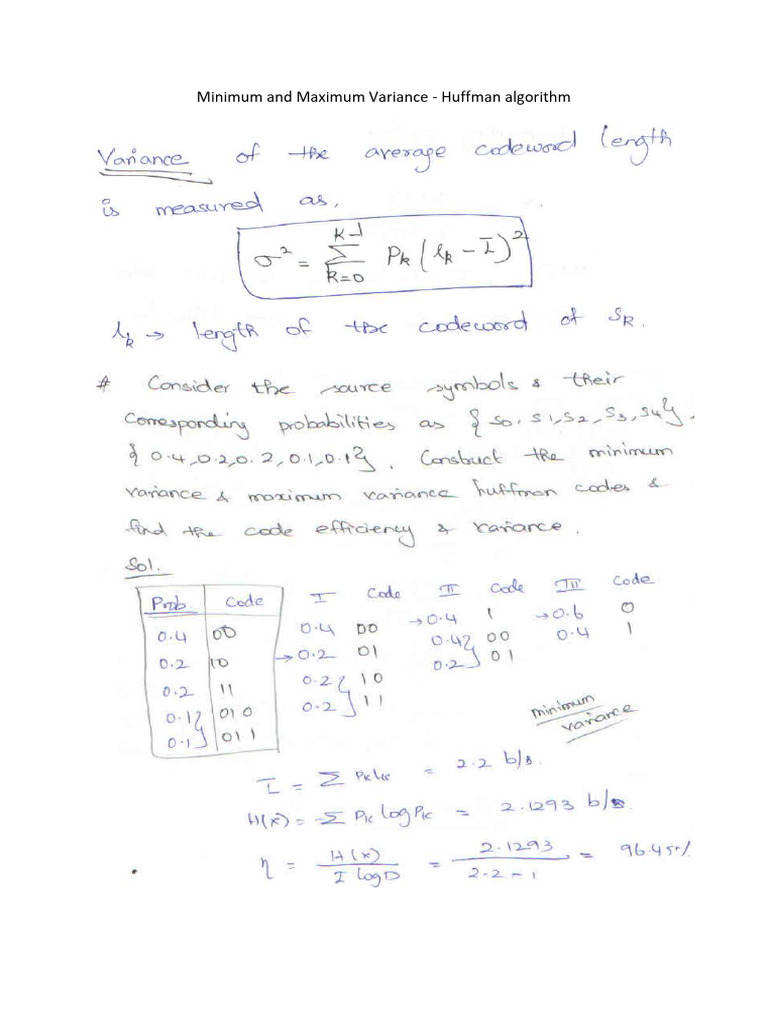 Minimum and Maximum Variance - Huffman algorithm
Variance of the average codeword length
is measured as,
σ² = Σ_{k=0}^{K-1} Pk (lk - L̄)²
lk → length of the codeword of sk.
# Consider the source symbols & their
corresponding probabilities as {s0, s1, s2, s3, s4},
{0.4, 0.2, 0.2, 0.1, 0.1}. Constuct the minimum
variance & maximum variance huffman codes &
find the code efficiency & variance.
Sol.
Prob. Code I Code II Code III Code
0.4 00 0.4 00 →0.4 1 →0.6 0
0.2 10 →0.2 01 0.4} 00 0.4 1
0.2 11 0.2} 10 0.2} 01
0.1} 010 0.2} 11
0.1} 011
minimum
variance
L̄ = Σ Pk lk = 2.2 b/s.
H(x) = -Σ Pk log Pk = 2.1293 b/s.
η = H(x) / L̄ log D = 2.1293 / 2.2 - 1 = 96.45%